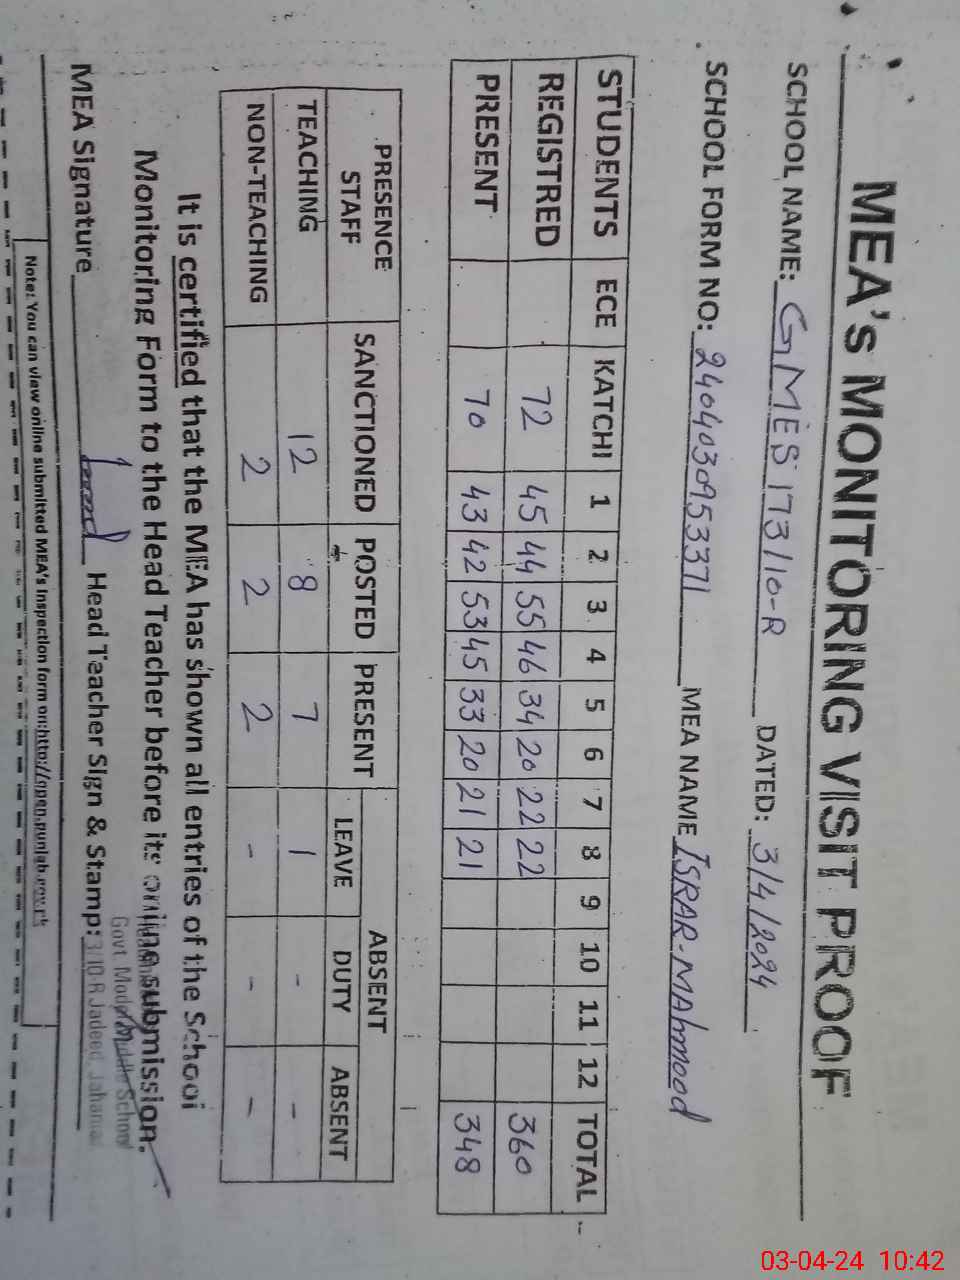 MEA's MONITORING VISIT PROOF
SCHOOL NAME: GMES 173/10-R DATED: 3/4/2024
SCHOOL FORM NO: 2404030953371 MEA NAME ISRAR-MAhmood
STUDENTS ECE KATCHI 1 2 3 4 5 6 7 8 9 10 11 12 TOTAL
REGISTRED 72 45 44 55 46 34 20 22 22 360
PRESENT 70 43 42 53 45 33 20 21 21 348
PRESENCE STAFF SANCTIONED POSTED PRESENT ABSENT
LEAVE DUTY ABSENT
TEACHING 12 8 7 1 - -
NON-TEACHING 2 2 2 - - -
It is certified that the MEA has shown all entries of the School
Monitoring Form to the Head Teacher before its online submission.
Govt. Model Middle School
MEA Signature Head Teacher Sign & Stamp: 3/10-R Jadeed, Jahania
Note: You can view online submitted MEA's Inspection form on:http://open.punjab.gov.pk
03-04-24 10:42